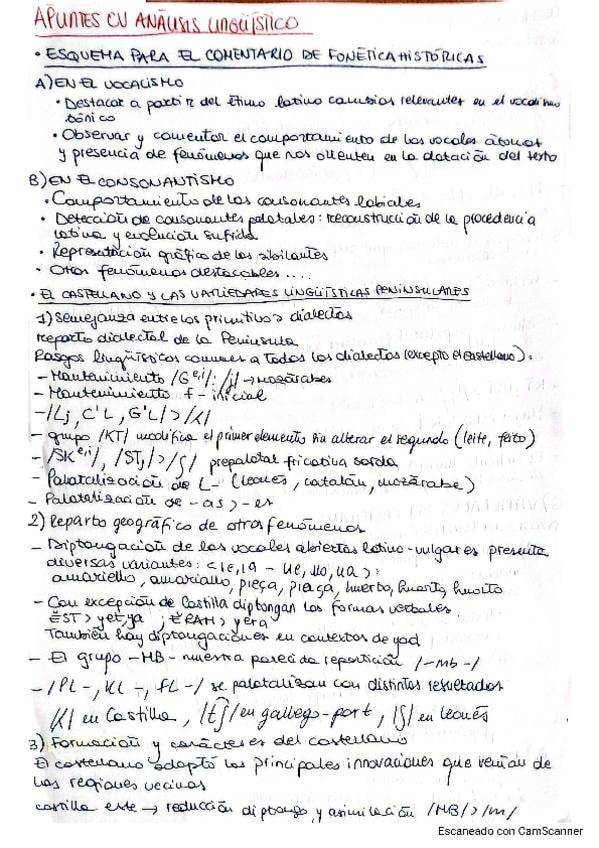 APUNTES CU ANÁLISIS LINGÜÍSTICO
• ESQUEMA PARA EL COMENTARIO DE FONÉTICA HISTÓRICAS
A) EN EL VOCALISMO
• Destacar a partir del étimo latino cambios relevantes en el vocalismo
tónico
• Observar y comentar el comportamiento de las vocales átonas
y presencia de fenómenos que nos orienten en la datación del texto
B) EN EL CONSONANTISMO
• Comportamiento de las consonantes labiales
• Detección de consonantes palatales: reconstrucción de la procedencia
latina y evolución sufrida
• Representación gráfica de las sibilantes
• Otros fenómenos destacables ....
• EL CASTELLANO Y LAS VARIEDADES LINGÜÍSTICAS PENINSULARES
1) Semejanza entre los primitivos dialectos
reparto dialectal de la Península
Rasgos lingüísticos comunes a todos los dialectos (excepto el castellano).
- Mantenimiento /Ge,i/: /j/ → mozárabes
- Mantenimiento f- inicial
- /Lj, C'L, G'L/ > /ʎ/
- grupo /KT/ modifica el primer elemento sin alterar el segundo (leite, feito)
- /SKe,i/, /STj/ > /ʃ/ prepalatal fricativa sorda
- Palatalización de L- (leonés, catalán, mozárabe)
- Palatalización de -as > -es
2) Reparto geográfico de otros fenómenos
- Diptongación de las vocales abiertas latino-vulgares presenta
diversas variantes: <ie, ia - ue, uo, ua>:
amariello, amariallo, pieça, piaça, huerto, huarto, huorto
- Con excepción de Castilla diptongan las formas verbales
ĔST > yet, ya ; ĔRAM > yera
También hay diptongaciones en contextos de yod
- El grupo -MB- muestra parecida repartición /-mb-/
- /PL-, KL-, FL-/ se palatalizan con distintos resultados
/ʎ/ en Castilla, /tʃ/ en gallego-port, /ʃ/ en leonés
3) Formación y carácteres del castellano
El castellano adaptó las principales innovaciones que venían de
las regiones vecinas
castilla este → reducción diptongo y asimilación /MB/ > /m/
Escaneado con CamScanner